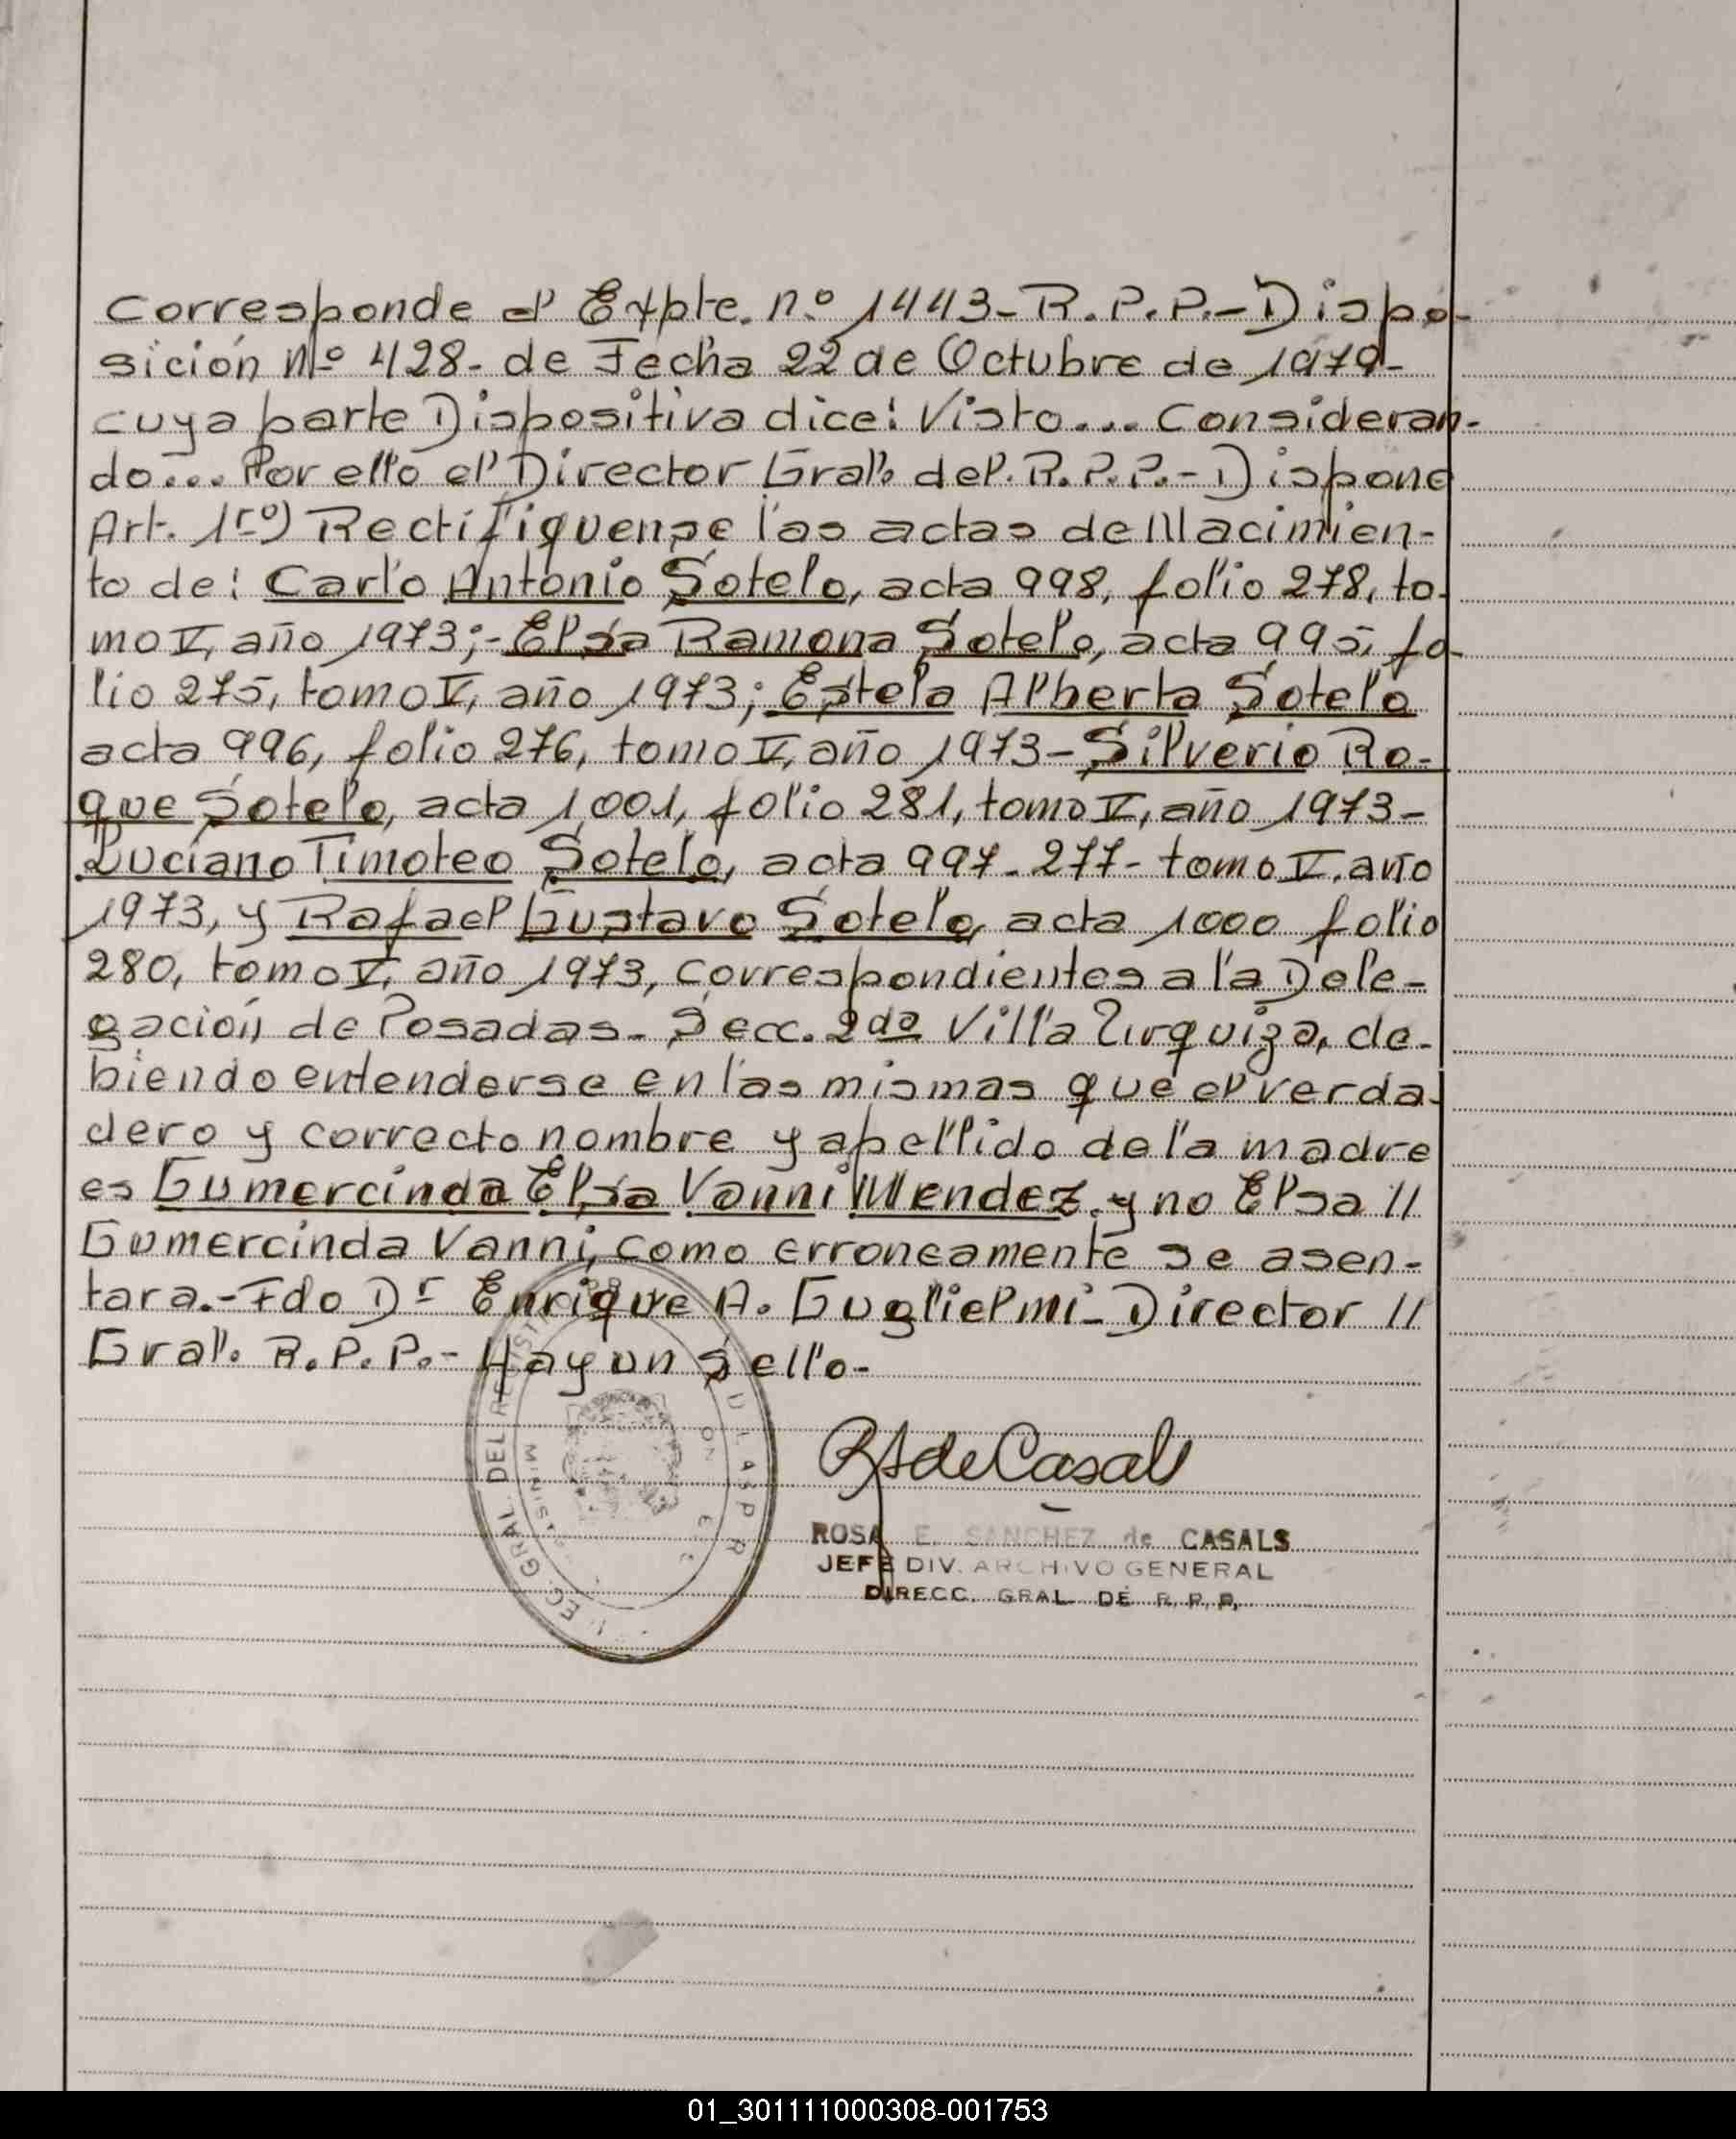 Corresponde al Expte. nº 1443- R.P.P.- Dispo-
sición Nº 428- de Fecha 22 de Octubre de 1979-
cuya parte Dispositiva dice: Visto... Consideran-
do... Por ello el Director Gral. del R.P.P.- Dispone
Art. 1rº) Rectifiquense las actas de Nacimien-
to de: Carlo Antonio Sotelo, acta 998, folio 278, to-
mo V, año 1973;- Elsa Ramona Sotelo, acta 995, fo-
lio 275, tomo V, año 1973; Estela Alberta Sotelo
acta 996, folio 276, tomo V, año 1973- Silverio Ro-
que Sotelo, acta 1001, folio 281, tomo V, año 1973-
Luciano Timoteo Sotelo, acta 997- 277- tomo V, año
1973, y Rafael Gustavo Sotelo, acta 1000 folio
280, tomo V, año 1973, correspondientes a la Dele-
gación de Posadas- Secc. 2da Villa Urquiza, de-
biendo entenderse en las mismas que el verda-
dero y correcto nombre y apellido de la madre
es Gumercinda Elsa Vanni Mendez, y no Elsa //
Gumercinda Vanni, como erroneamente se asen-
tara.- Fdo Dr Enrique A. Guglielmi- Director //
Gral. R.P.P.- Hay un sello-
RS de Casals
ROSA E. SANCHEZ de CASALS
JEFE DIV. ARCHIVO GENERAL
DIRECC. GRAL. DE R.P.P.
GRAL. DEL
01_301111000308-001753